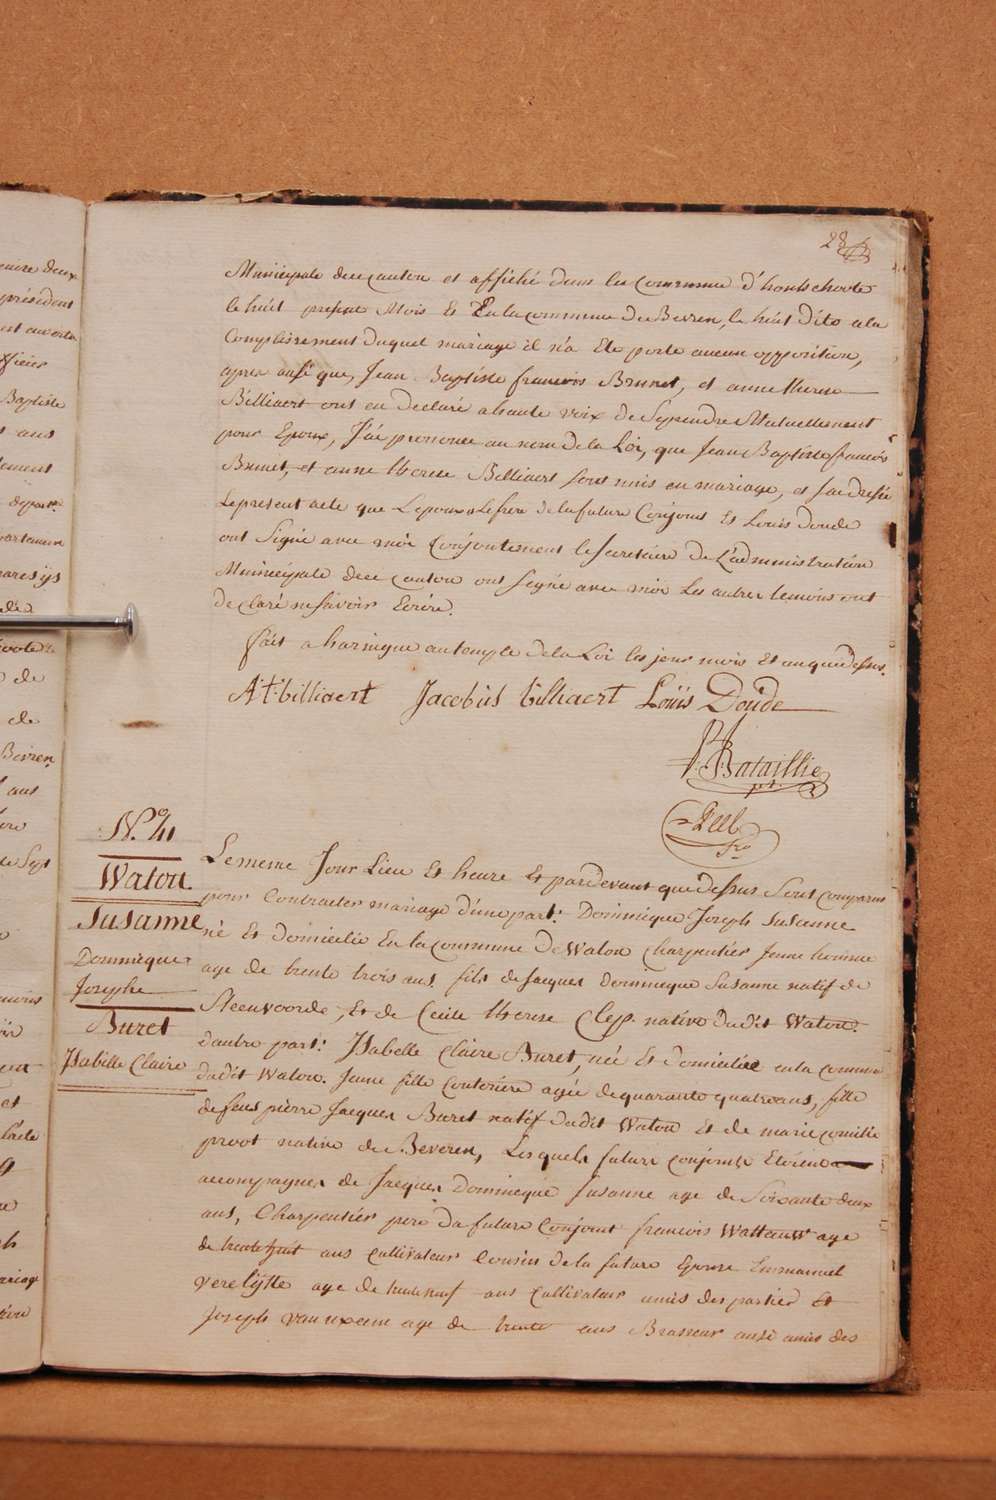 28
Municipale dece canton et affiché dans les Commune d'hontschoote
le huit present Mois Et En la commune De Berren, le huit dito a la
Complissement Duquel mariage il n'a Ete porte aucun opposition,
apres ausi que, Jean Baptiste francois Brunet, et anne therese
Billiaert ont eu Declaré a haute voix de Seprendre Mutuellement
pour Epoux, J'ai prononcé au nom de la Loi, que Jean Baptiste francois
Brunet, et anne therese Billiaert sont unis en mariage, et J'ai dressé
Le present acte que L'epoux Le frere de la future Conjoint Et Louis doude
ont Signé avec moi Conjointement le Secretaire De L'administration
Municipale dece canton ont signé avec moi Les autres temoins ont
declaré ne savoir Ecrire.
fait a haringue au temple de la Loi les jour mois Et an que dessus.
A:t: billiaert Jacobus billiaert Loüis Doude
P. J. Bataillie
pt.
N.° 41
Watou
Susanne
Dominique
Josephe
Buret
Isabelle Claire
Le meme Jour Lieu Et heure Et pardevant que dessus Sont comparus
pour Contracter mariage d'une part: Dominique Joseph Susanne
né Et domicilié En la commune De Watou Charpentier Jeune homme
age de trente trois ans, fils de Jacques Dominique Susanne natif de
Steenvoorde, Et de Cecile therese Clep. native du dit Watou.
d'autre part: Isabelle Claire Buret, née Et domiciliée en la commune
du dit Watou. Jeune fille Couturière agée de quarante quatre ans, fille
de feus pierre Jacques Buret natif du dit Watou Et de marie
proot native de Beveren, Lesquels future conjoints Etoient
accompagnes de Jacques Dominique Susanne age de Soixante deux
ans, Charpentier pere du future Conjoint francois Wattauw age
de trente huit ans Cultivateur Cousin de la future Epouse Emmanuel
Verelytte age de trente neuf ans Cultivateur amis des parties Et
Joseph age de trente ans Brasseur ausi amis des